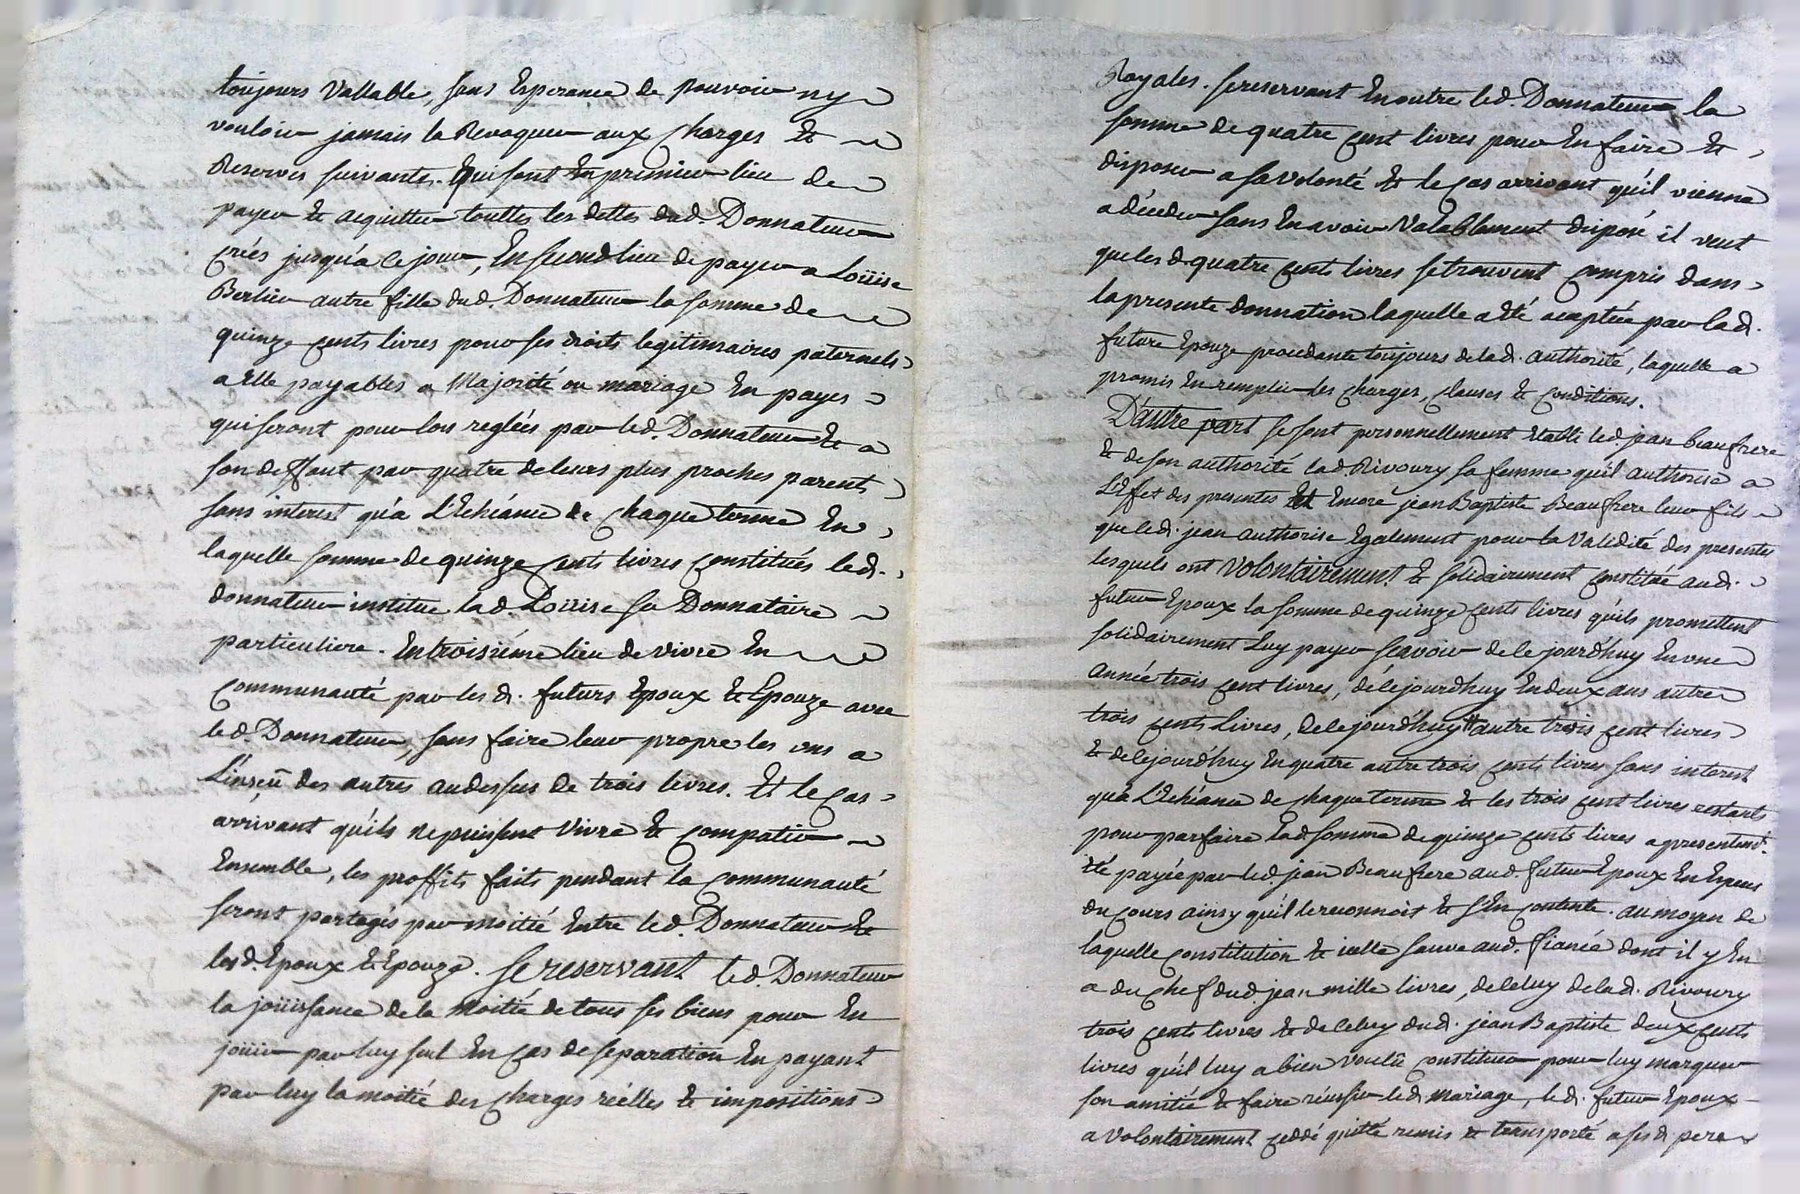 toujours Vallable, sans Esperance de pouvoir ny
vouloir jamais la Revoquer aux Charges Et
Reserves suivantes. Qui sont En premier lieu de
payer Et acquitter touttes les dettes dud. Donnateur
créés jusqu'a ce jour, En second lieu de payer a Loüise
Berlier autre fille dud. Donnateur la somme de
quinze cents livres pour ses droits legitimaires paternels
a Elle payables a Majorité ou mariage En payes
qui seront pour lors reglées par led. Donnateur Et a
son deffaut par quatre de leurs plus proches parents
sans interest qu'a L'Echéance de Chaque terme En
laquelle somme de quinze cents livres constitués led.
donnateur institue lad. Loüise sa Donnataire
particuliere. En troisiéme lieu de vivre En
Communauté par les d. futurs Epoux Et Epouze avec
led Donnateur, sans faire leur propre les uns a
L'inscû des autres au dessus de trois livres. Et le cas
arrivant qu'ils ne puissent Vivre Et compatir
Ensemble, les proffits faits pendant la Communauté
seront partagés par moitié Entre led. Donnateur Et
lesd. Epoux Et Epouze. Se reservant led. Donnateur
la joüissance de la Moitié de tous ses biens pour En
joüir par luy seul En cas de separation En payant
par luy la moitié des charges réelles Et impositions
Royales. se reservant En outre led. Donnateur la
somme de quatre cent livres pour En faire Et
disposer a sa volonté Et le cas arrivant qu'il vienne
a décéder sans En avoir Valablement disposé il veut
que les d. quatre cents livres se trouvent compris dans
la presente donnation laquelle a Eté acaptée par lad.
future Epouze procedante toujours de lad. authorité, laquelle a
promis En remplir les charges, clauses Et Conditions.
D'autre part se sont personnellement Etabli led jean beaufrere
Et de son authorité lad Rivoury sa femme qu'il authorise a
L'Effet des presentes Et Encore jean Baptiste Beaufrere leur fils
que led. jean authorise Egalement pour la Validité des presentes
lesquels ont Volontairement Et solidairement constitué aud.
futur Epoux la somme de quinze cents livres qu'ils promettent
solidairement Luy payer sçavoir de ce jourd'huy En une
Année trois cent livres, de ce jourd'huy En deux ans autre
trois cents Livres, de ce jourd'huy # autre trois cent livres
Et de ce jourd'huy En quatre autre trois cents livres sans interest
qu'a L'Echéance de chaque terme Et les trois cent livres restants
pour parfaire Lad. somme de quinze cents livres a presentemt.
Eté payée par led. jean Beaufrere aud. futur Epoux En Especes
du Cours ainsy qu'il le reconnoit Et s'En contente. au moyen de
laquelle constitution Et icelle sauve aud. fiancé dont il y En
a du Chef dud. jean mille livres, de celuy de lad. Rivoury
trois cents livres Et de celuy dud. jean Baptiste deux cents
livres qu'il luy a bien voulû constituer pour luy marquer
son amitié Et faire réussir led. mariage, led. futur Epoux
a Volontairement ceddé quitté remis et transporté a ses d. pere